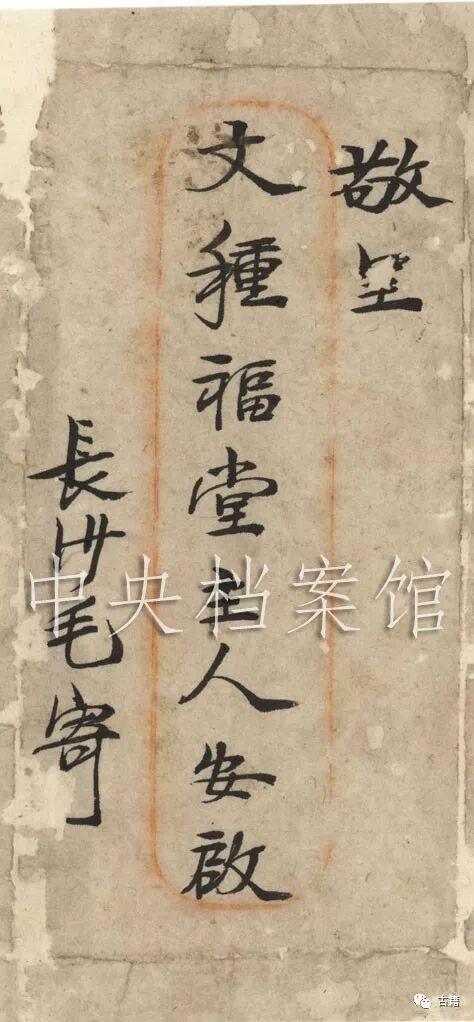 敬呈
文種福堂主人安啟
長沙毛寄
中央档案馆
古籍